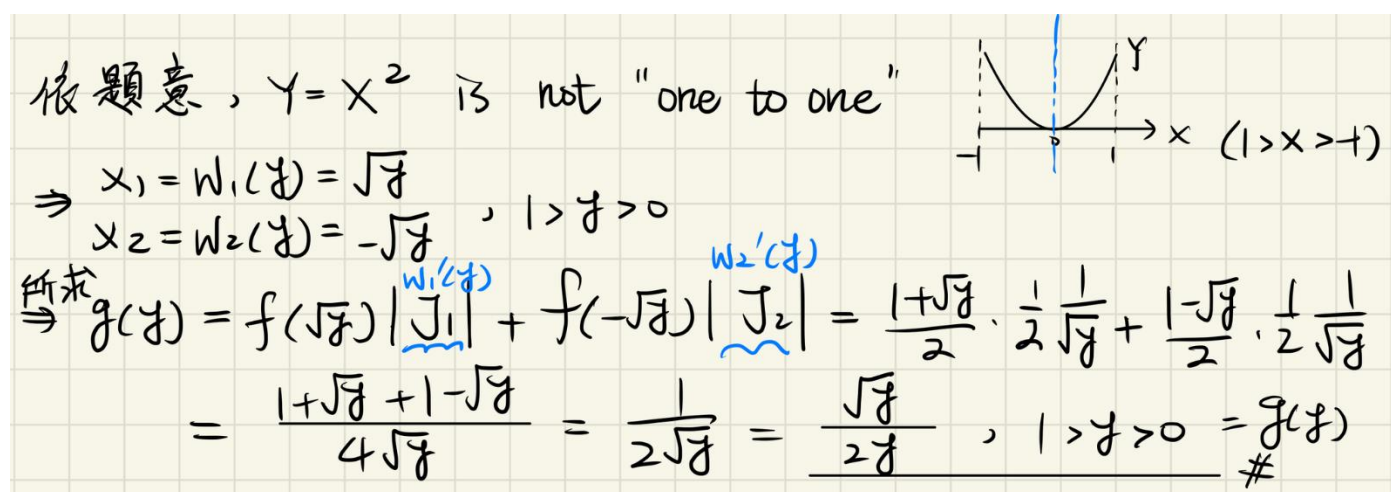 依題意，Y=X² is not "one to one"
Y
-1 0 1 X (1>X>-1)
⇒ x₁=W₁(y)=√y
x₂=W₂(y)=-√y , 1>y>0
W₁'(y) W₂'(y)
所求
⇒ g(y) = f(√y)|J₁| + f(-√y)|J₂| = (1+√y)/2 · 1/2 1/√y + (1-√y)/2 · 1/2 1/√y
= (1+√y+1-√y)/(4√y) = 1/(2√y) = √y/(2y) , 1>y>0 = g(y) #